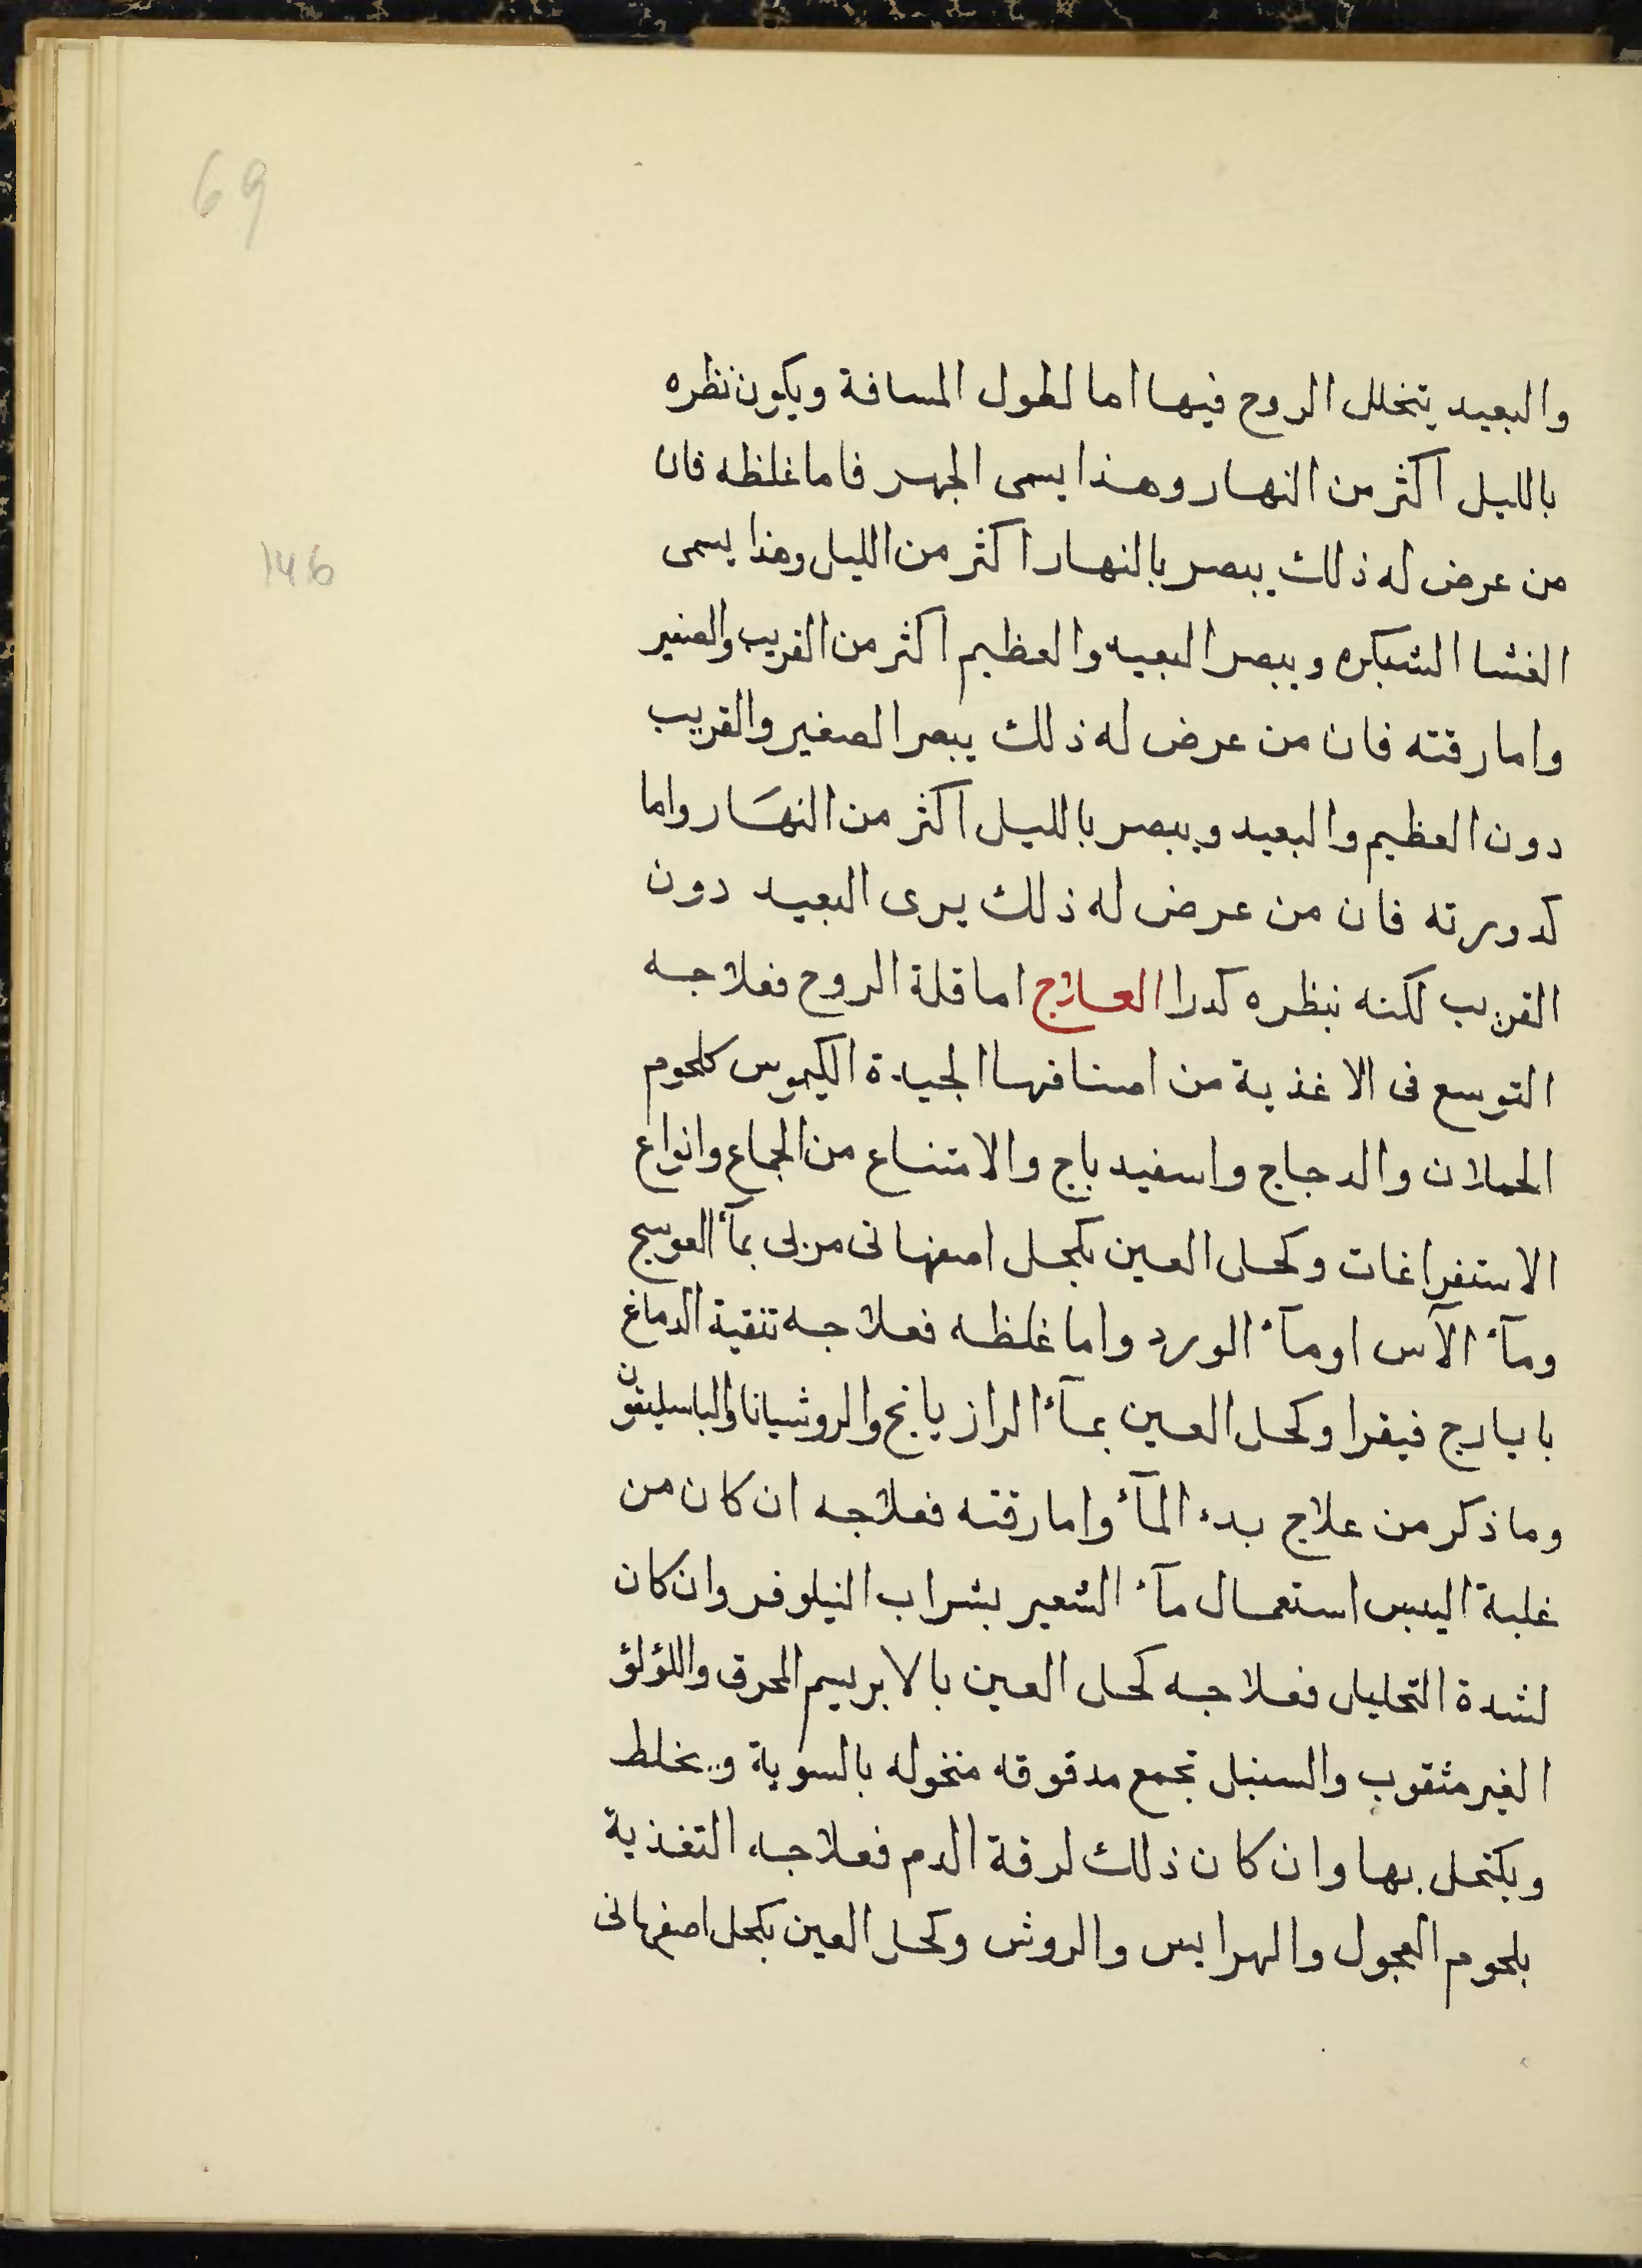 69
والبعيد يتخلل الروح فيها اما لطول المسافة ويكون نظره
بالليل اكثر من النهار وهذا يسمى الجهر فاما غلظه فان
146
من عرض له ذلك يبصر بالنهار اكثر من الليل وهذا يسمى
الغشا الشبكره ويبصر البعيد والعظيم اكثر من القريب والصغير
واما رقته فان من عرض له ذلك يبصر الصغير والقريب
دون العظيم والبعيد ويبصر بالليل اكثر من النهَار واما
كدورته فان من عرض له ذلك يرى البعيد دون
القريب لكنه ينظره كدرا العلاج اما قلة الروح فعلاجه
التوسع فى الاغذية من اصنافها الجيدة الكيموس كلحوم
الحملان والدجاج واسفيدباج والامتناع من الجماع وانواع
الاستفراغات وكحل العين بكحل اصفهانى مربى بمآء العوسج
ومآء الآس اومآء الورد واما غلظه فعلاجه تنقية الدماغ
بايارج فيقرا وكحل العين بمآء الرازيانج والروشيانا والباسليقون
وما ذكر من علاج بدء المآء واما رقته فعلاجه ان كان من
غلبة اليبس استعمال مآء الشعير بشراب النيلوفر وان كان
لشدة التحليل فعلاجه كحل العين بالابريسم المحرق واللؤلؤ
الغير مثقوب والسنبل تجمع مدقوقه منخوله بالسوية ويخلط
ويكتحل بها وان كان ذلك لرقة الدم فعلاجه التغذية
بلحوم العجول والهرايس والروش وكحل العين بكحل اصفهانى